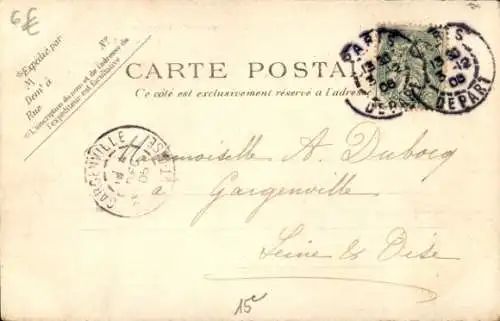 6€
*Expédié par
M
Dem^t à
Rue
N°
*L'inscription du nom et de l'adresse de
l'expéditeur est facultative
CARTE POSTAL
Ce côté est exclusivement réservé à l'adresse
PARIS
DEPART
DEPART
GARGENVILLE
Mademoiselle A. Dubocq
à
Gargenville
Seine & Oise
15